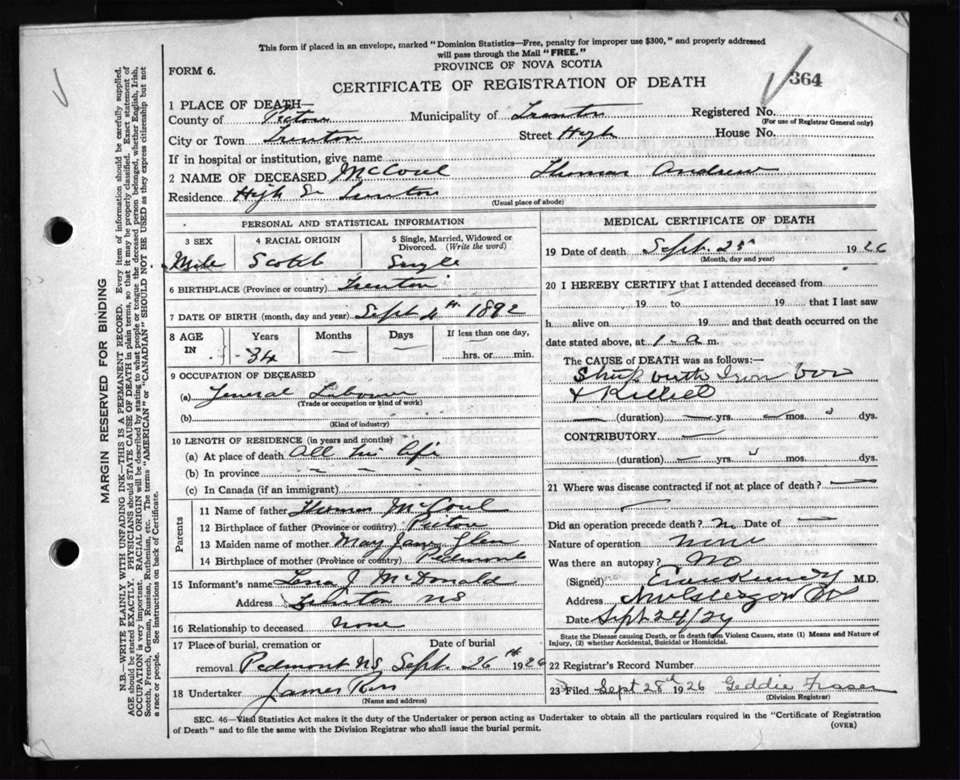 This form if placed in an envelope, marked "Dominion Statistics—Free, penalty for improper use $300," and properly addressed
will pass through the Mail "FREE."
PROVINCE OF NOVA SCOTIA
FORM 6.
CERTIFICATE OF REGISTRATION OF DEATH
364
1 PLACE OF DEATH—
County of Pictou Municipality of Trenton Registered No.
(For use of Registrar General only)
City or Town Trenton Street High House No.
If in hospital or institution, give name
2 NAME OF DECEASED McCoul Thomas Andrew
Residence High St Trenton
(Usual place of abode)
PERSONAL AND STATISTICAL INFORMATION
3 SEX 4 RACIAL ORIGIN 5 Single, Married, Widowed or
Divorced. (Write the word)
Male Scotch Single
6 BIRTHPLACE (Province or country) Trenton
7 DATE OF BIRTH (month, day and year) Sept 4th 1892
8 AGE IN Years Months Days If less than one day,
34 — — hrs. or min.
9 OCCUPATION OF DECEASED
(a) General Labour
(Trade or occupation or kind of work)
(b)
(Kind of industry)
10 LENGTH OF RESIDENCE (in years and months)
(a) At place of death All his life
(b) In province — — — —
(c) In Canada (if an immigrant)
Parents
11 Name of father Thomas McCoul
12 Birthplace of father (Province or country) Pictou
13 Maiden name of mother May Jane Glen
14 Birthplace of mother (Province or country) Pidmont
15 Informant's name Lena J McDonald
Address Trenton NS
16 Relationship to deceased None
17 Place of burial, cremation or Date of burial
removal Pidmont NS Sept. 26th 1926
18 Undertaker James Ross
(Name and address)
MEDICAL CERTIFICATE OF DEATH
19 Date of death Sept. 25th 1926
(Month, day and year)
20 I HEREBY CERTIFY that I attended deceased from
19 to 19 that I last saw
h alive on 19 and that death occurred on the
date stated above, at 1- a m.
The CAUSE OF DEATH was as follows:—
Struck with Iron bar
& Killed
(duration) — yrs. — mos. dys.
CONTRIBUTORY —
(duration) — yrs. mos. dys.
21 Where was disease contracted if not at place of death? —
Did an operation precede death? No Date of —
Nature of operation none
Was there an autopsy? No
(Signed) Evan Kennedy M.D.
Address New Glasgow NS
Date Sept 24/27
State the Disease causing Death, or in death from Violent Causes, state (1) Means and Nature of
Injury, (2) whether Accidental, Suicidal or Homicidal.
22 Registrar's Record Number
23 Filed Sept 28th 1926 Geddie Fraser
(Division Registrar)
SEC. 46—Vital Statistics Act makes it the duty of the Undertaker or person acting as Undertaker to obtain all the particulars required in the "Certificate of Registration
of Death" and to file the same with the Division Registrar who shall issue the burial permit.
(OVER)
MARGIN RESERVED FOR BINDING
N.B.—WRITE PLAINLY WITH UNFADING INK—THIS IS A PERMANENT RECORD. Every item of information should be carefully supplied.
AGE should be stated EXACTLY. PHYSICIANS should STATE CAUSE OF DEATH in plain terms, so that it may be properly classified. Exact statement of
OCCUPATION is very important. RACIAL ORIGIN will be described by stating to what people or tongue the deceased person belonged, whether English, Irish,
Scotch, French, German, Russian, Ruthenian, etc. The terms "AMERICAN" or "CANADIAN" SHOULD NOT BE USED as they express citizenship but not
a race or people. See instructions on back of Certificate.